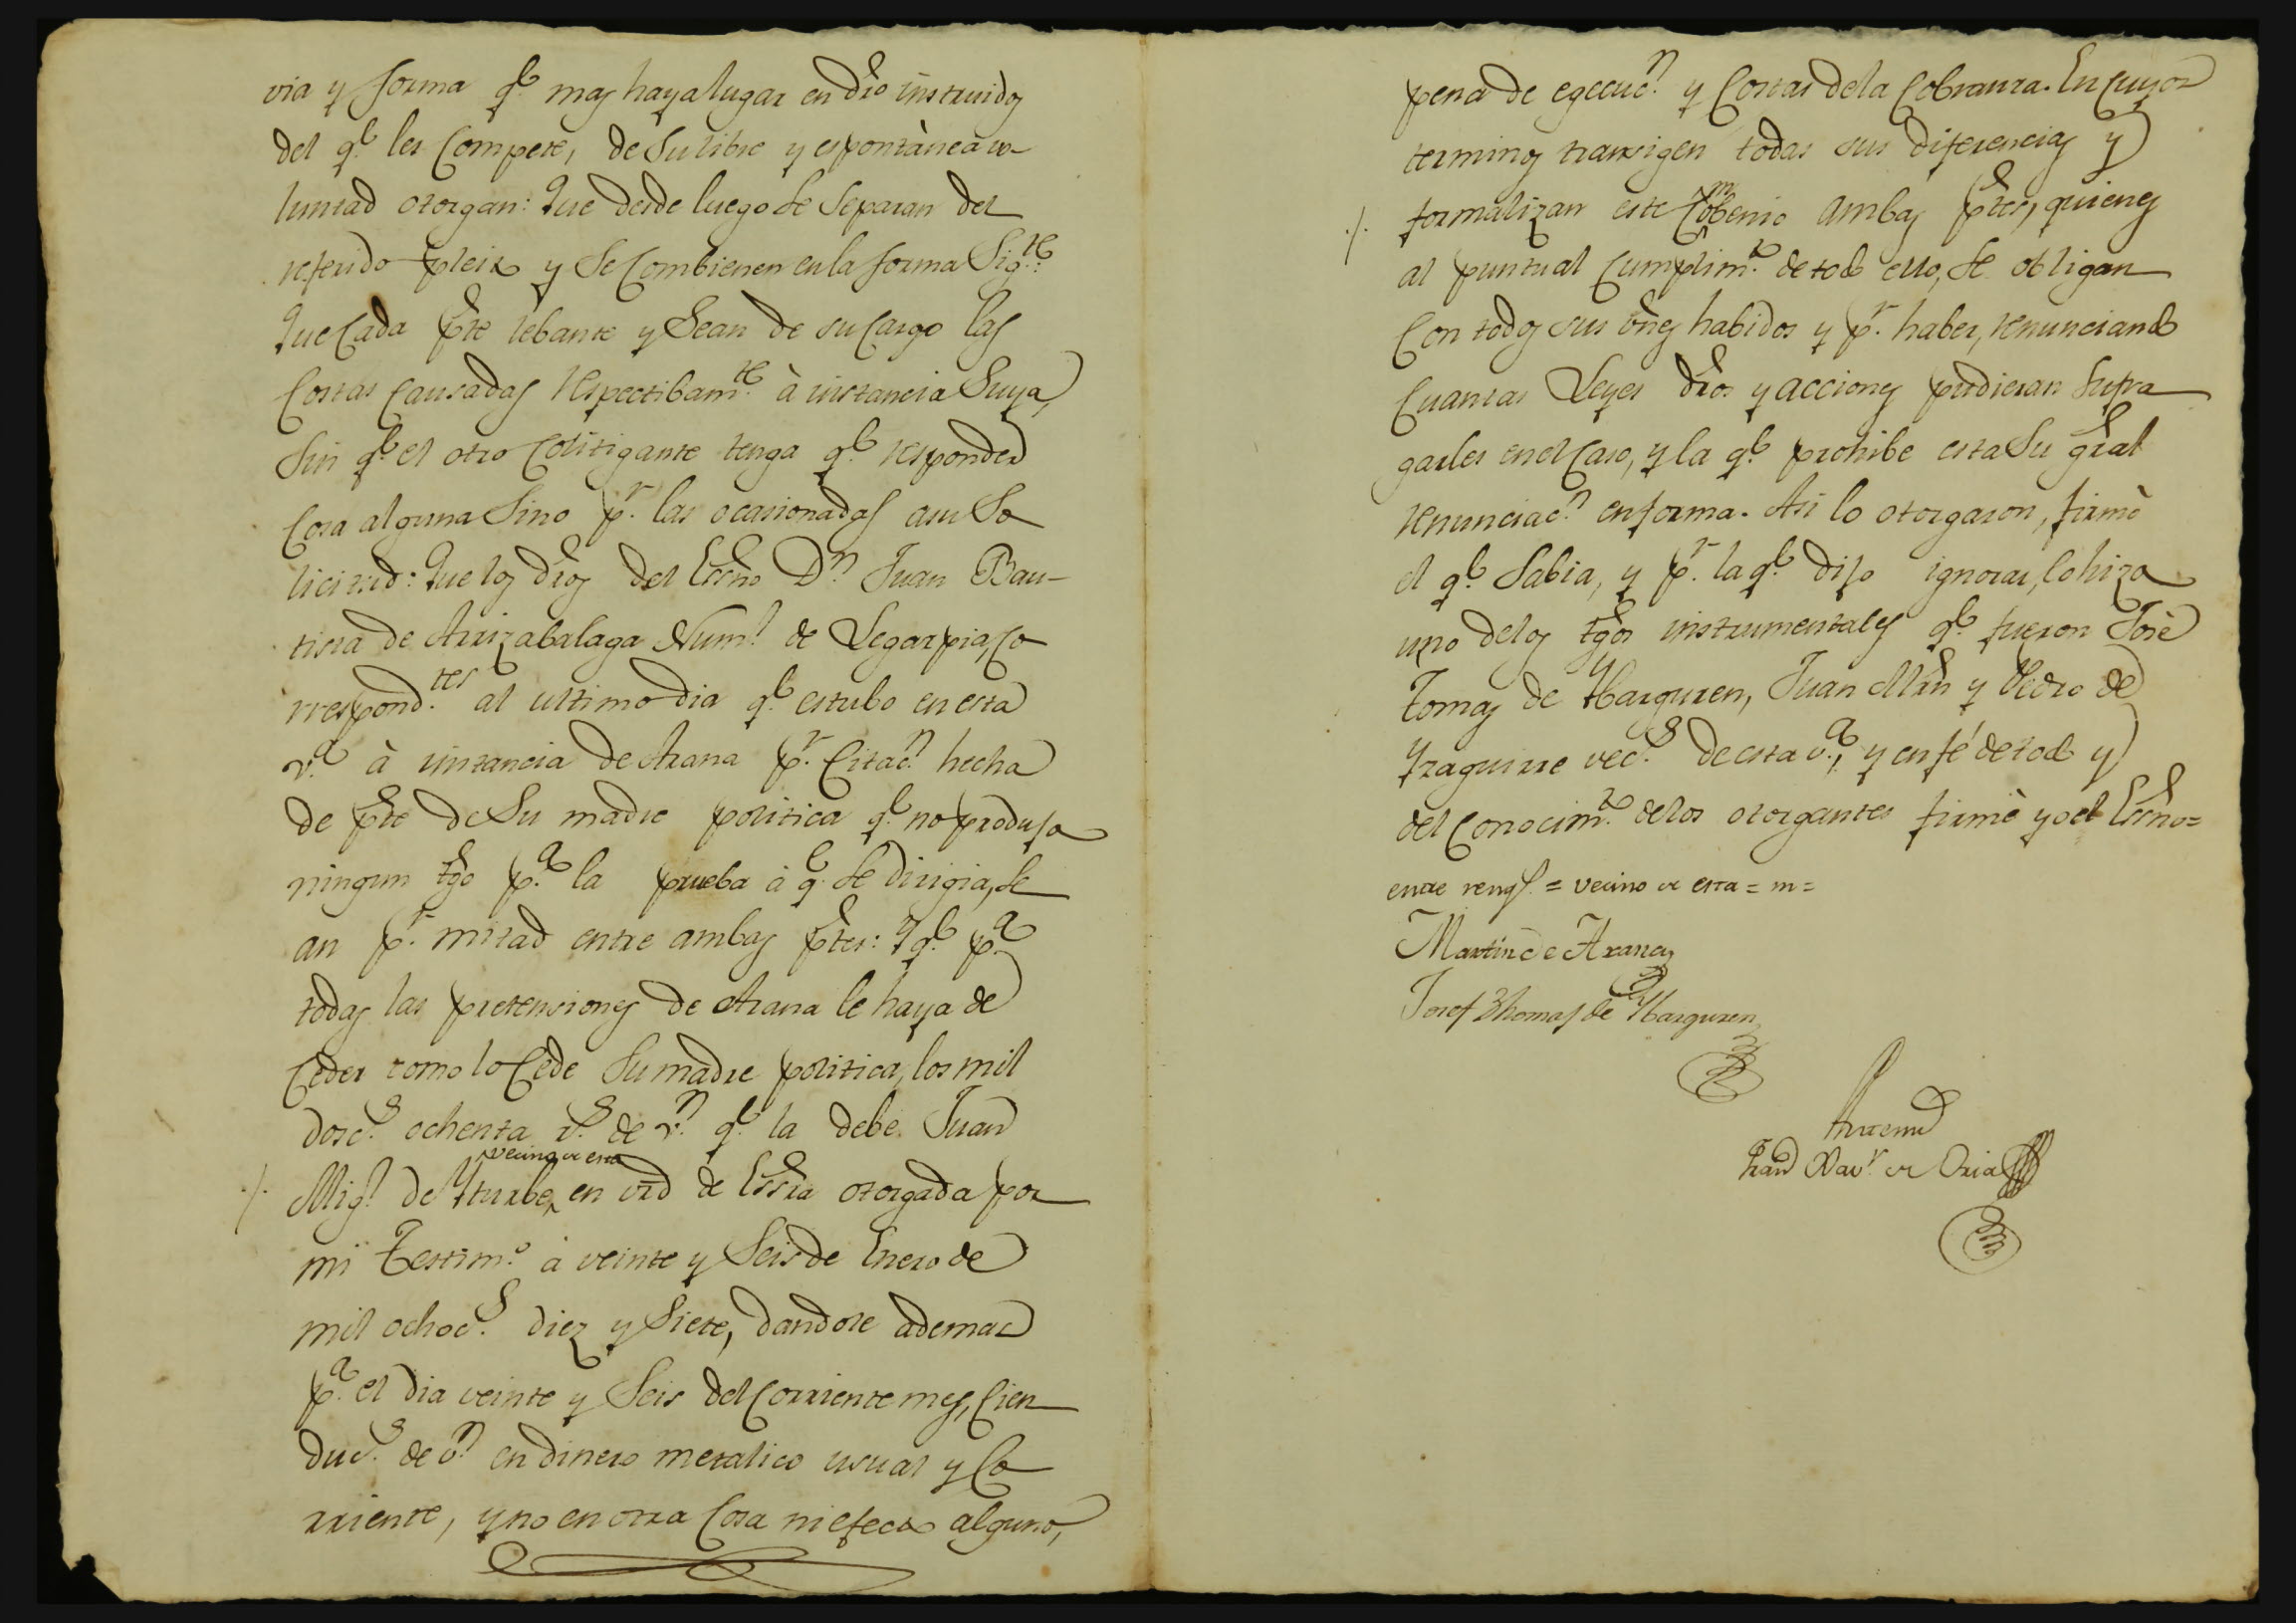 via y forma q.e mas haya lugar en dro instruidos
del q.e les Compete, de su libre y espontànea vo-
luntad otorgan: Que desde luego se separan del
referido pleito y se Combienen en la forma Sig.te:
Que Cada pte lebante y Sean de su Cargo las
Costas Causadas respectibam.te à instancia Suya,
Sin q.e el otro Colitigante tenga q.e responder
Cosa alguna Sino p.r las ocasionadas a su So
licitud: Que los dros del Essno D.n Juan Bau-
tista de Arrizabalaga Num.l de Legarpia, Co
rrespond.tes al ultimo dia q.e estubo en esta
v.a à instancia de Arana p.r Citac.n hecha
de pte de Su madre politica q.e no produjo
ningun tgo p.a la prueba à q.e se dirigia, se
an p.r mitad entre ambas ptes: Y q.e p.a
todas las pretensiones de Arana le haya de
Ceder como lo Cede Su madre politica, los mil
dosc.s ochenta r.s de v.n q.e la debe Juan
vecino de esta
Mig.l de Yturbe, en vrd de Essra otorgada por
mi Testim.o à veinte y Seis de Enero de
mil ochoc.s diez y Siete, dandole ademas
p.a el dia veinte y Seis del Corriente mes, Cien
duc.s de v.n en dinero metalico usual y Co
rriente, y no en otra Cosa ni efecto alguno,
pena de egecuc.n y Costas de la Cobranza. En cuyos
terminos transigen todas sus diferencias y
formalizan este Combenio ambas ptes, quienes
al puntual Cumplim.to de todo ello, se obligan
Con todos sus vnes habidos y p.r haber, renunciando
Cuantas Leyes dros y acciones pudieran Sufra
garles en el Caso, y la q.e prohibe esta Su gral
renunciac.n en forma. Asi lo otorgaron, firmò
el q.e Sabia, y p.r la q.e dijo ignorar, lo hizo
uno de los tgos instrumentales q.e fueron Josè
Tomas de Ybarguren, Juan Mrn y Pedro de
Yzaguirre vec.s de esta v.a, y en fé de todo y
del Conocim.to de los otorgantes firmè yo el Essno=
entre rengs. = vecino de esta = m =
Martin de Arana
Josef Thomas de Ybarguren
Antemi
Fran.co Xav.r de Oria